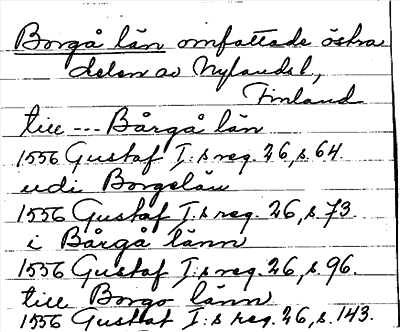 Borgå län omfattade östra
delen av Nylands l,
Finland
till --- Bårgå län
1556 Gustaf I:s reg. 26, s. 64.
udi Borgelän
1556 Gustaf I:s reg. 26, s. 73
i Bårgå länn
1556 Gustaf I:s reg. 26, s. 96.
till Borgo länn
1556 Gustaf I:s reg. 26, s. 143.